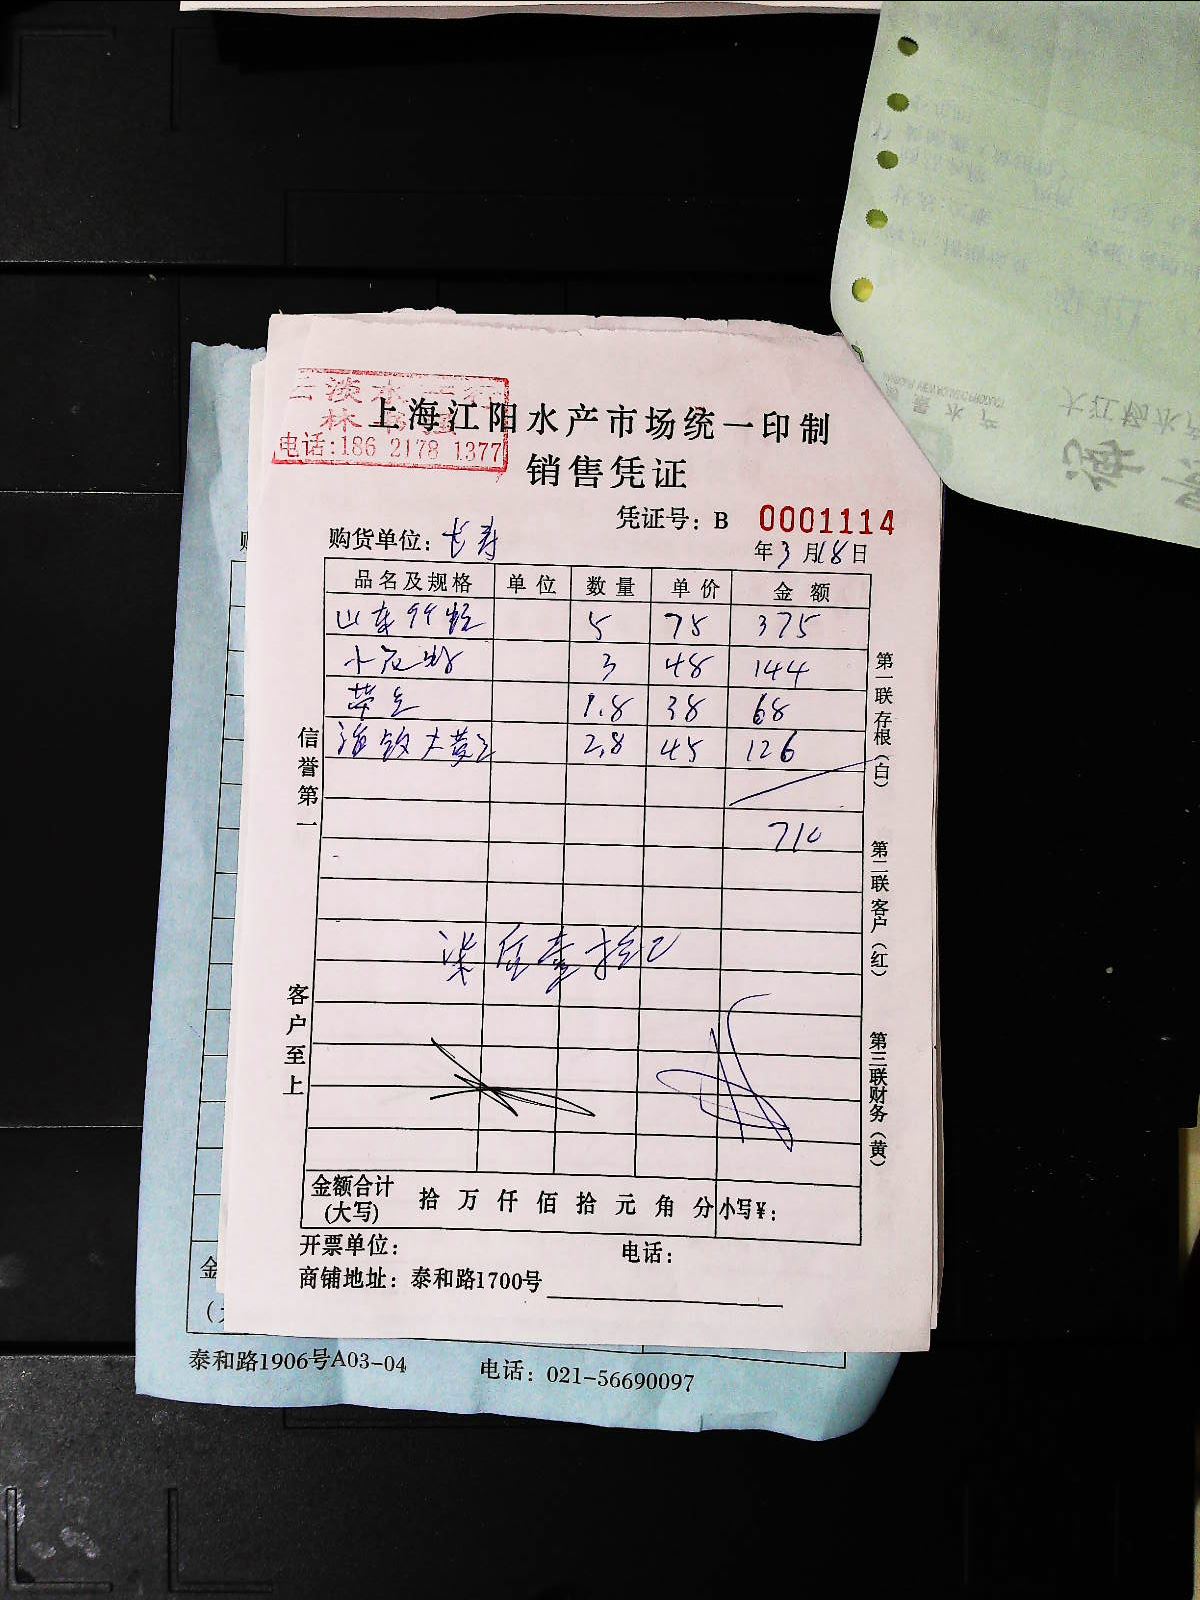 淡水
林
电话:186 2178 1377
上海江阳水产市场统一印制
销售凭证
凭证号: B 0001114
购货单位: 长寿
年 3 月 18 日
品名及规格 单位 数量 单价 金额
山东 5 75 375
小 3 48 144
1.8 38 68
2.8 45 126
710
柒佰壹拾元
信誉第一
客户至上
第一联存根(白)
第二联客户(红)
第三联财务(黄)
金额合计(大写) 拾 万 仟 佰 拾 元 角 分 小写¥:
开票单位: 电话:
商铺地址: 泰和路1700号
金
泰和路1906号A03-04 电话: 021-56690097